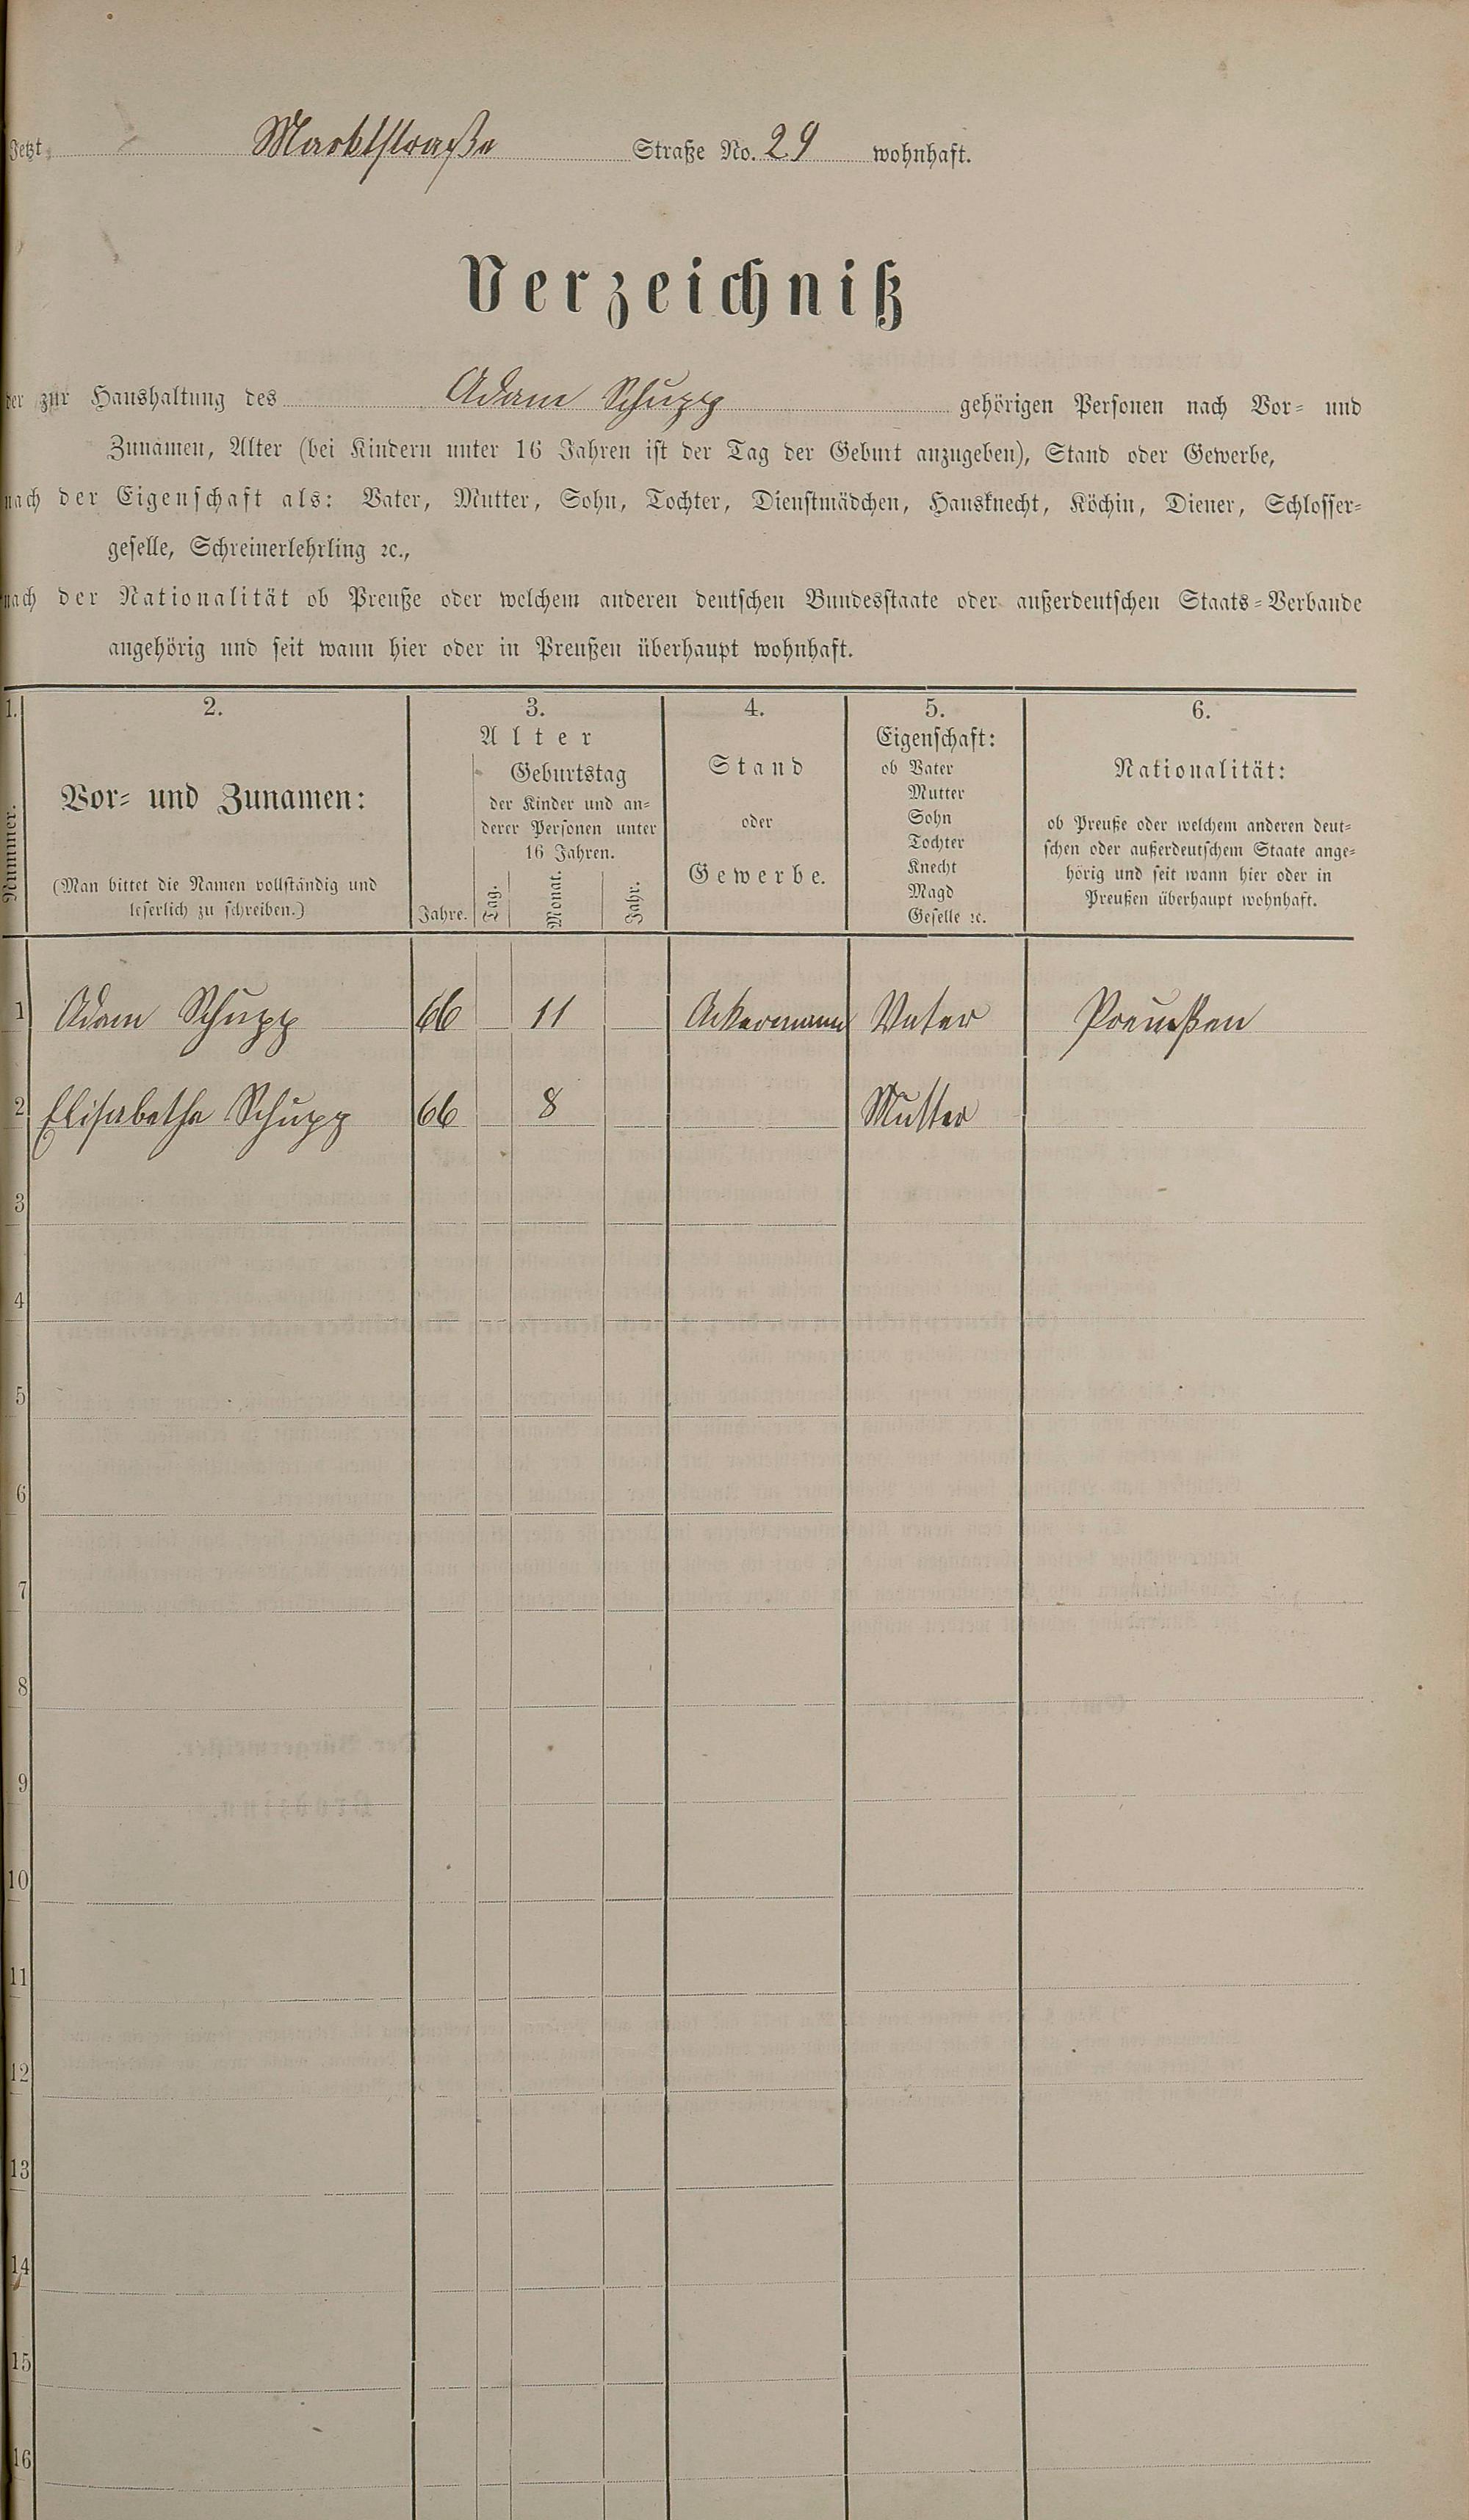 Jetzt Marktstraße Straße No. 29 wohnhaft.
Verzeichniß
der zur Haushaltung des Adam Schupp gehörigen Personen nach Vor- und
Zunamen, Alter (bei Kindern unter 16 Jahren ist der Tag der Geburt anzugeben), Stand oder Gewerbe,
nach der Eigenschaft als: Vater, Mutter, Sohn, Tochter, Dienstmädchen, Hausknecht, Köchin, Diener, Schlosser-
geselle, Schreinerlehrling ꝛc.,
nach der Nationalität ob Preuße oder welchem anderen deutschen Bundesstaate oder außerdeutschen Staats-Verbande
angehörig und seit wann hier oder in Preußen überhaupt wohnhaft.
1. 2. 3. 4. 5. 6.
Nummer.
Vor- und Zunamen:
(Man bittet die Namen vollständig und
leserlich zu schreiben.)
Alter
Jahre.
Geburtstag
der Kinder und an-
derer Personen unter
16 Jahren.
Tag. Monat. Jahr.
Stand
oder
Gewerbe.
Eigenschaft:
ob Vater
Mutter
Sohn
Tochter
Knecht
Magd
Geselle ꝛc.
Nationalität:
ob Preuße oder welchem anderen deut-
schen oder außerdeutschem Staate ange-
hörig und seit wann hier oder in
Preußen überhaupt wohnhaft.
1 Adam Schupp 66 11 Ackermann Vater Preußen
2 Elisabetha Schupp 66 8 Mutter
3
4
5
6
7
8
9
10
11
12
13
14
15
16